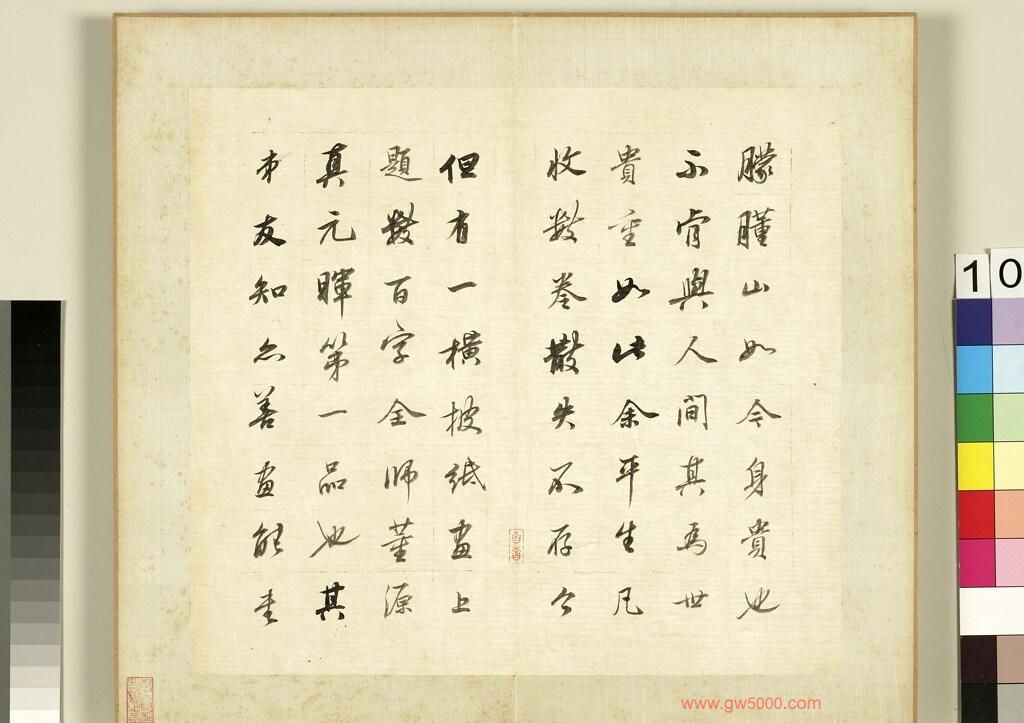 朦朣山如今身貴也
不肯與人間其為世
貴重如此余平生凡
收數卷散失不存今
但有一橫披紙畫上
題數百字全師董源
真元暉第一品也其
本友知亦善畫能
10
www.gw5000.com